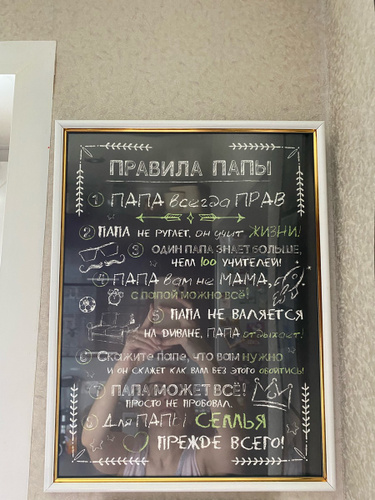 ПРАВИЛА ПАПЫ
1 ПАПА всегда ПРАВ
2 ПАПА НЕ РУГАЕТ, он учит ЖИЗНИ!
3 ОДИН ПАПА ЗНАЕТ БОЛЬШЕ,
ЧЕМ 100 УЧИТЕЛЕЙ!
4 ПАПА вам не МАМА,
с папой можно всё!
5 ПАПА НЕ ВАЛЯЕТСЯ
НА ДИВАНЕ, ПАПА отдыхает!
6 Скажите папе, что вам нужно
И ОН СКАЖЕТ КАК ВАМ БЕЗ ЭТОГО ОБОЙТИСЬ!
7 ПАПА МОЖЕТ ВСЁ!
ПРОСТО НЕ ПРОБОВАЛ
8 Для ПАПЫ СЕМЬЯ
ПРЕЖДЕ ВСЕГО!